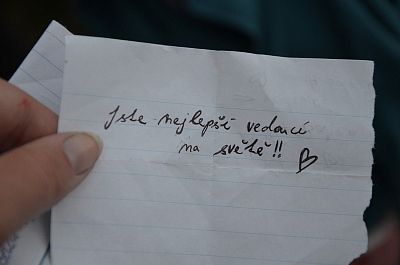 Jste nejlepší vedoucí
na světě!! ♡